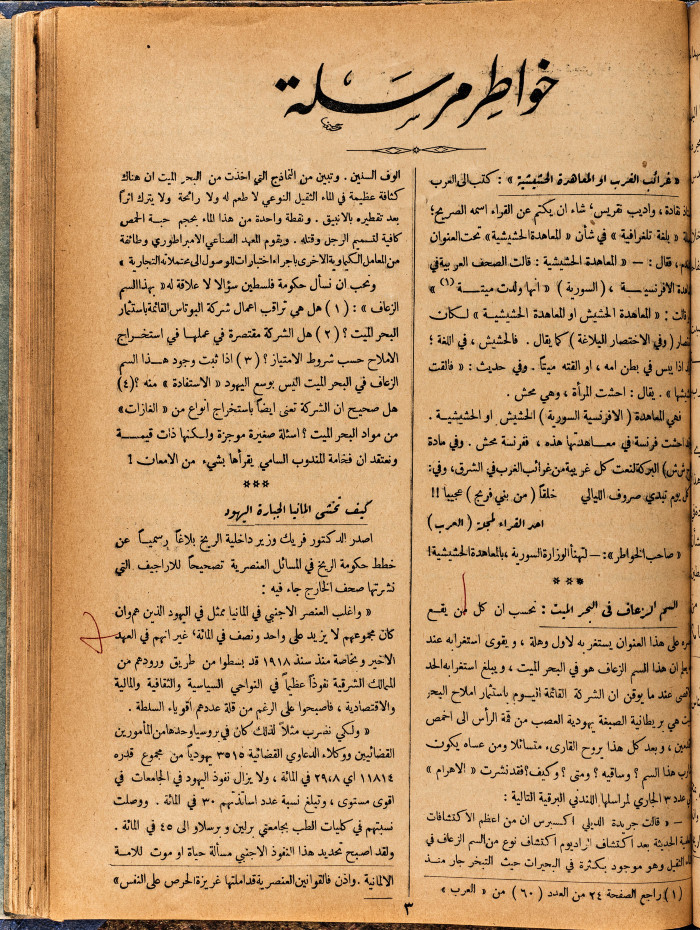 خواطر مرسلة
« غرائب الغرب او المعاهدة الحشيشية » : كتب الى العرب
نقادة ، واديب نقريس ؛ شاء ان يكتم عن القراء اسمه الصريح ؛
« بلغة تلغرافية » في شأن « المعاهدة الحشيشية » تحت العنوان
فقال : — « المعاهدة الحشيشية : قالت الصحف العربية في
الافرنسية ، ( السورية ) « انها ولدت ميتة (١) »
قالت : « المعاهدة الحشيش او المعاهدة الحشيشية » لكان
( وفي الاختصار للبلاغة ) كما يقال . فالحشيش ، في اللغة ؛
اذا يبس في بطن امه ، او القته ميتاً . وفي حديث : « فالقت
» . يقال : احشت المرأة ، وهي محش .
فهي المعاهدة ( الافرنسية السورية ) الحشيش او الحشيشية .
احشت فرنسة في معاهدتها هذه ، ففرنسة محش . وفي مادة
البركة لنعت كل غريبة من غرائب الغرب في الشرق، وفي:
يوم تبدي صروف الليالي خلقاً ( من بني فرنج ) عجيبا !!
احد القراء لمجلة ( العرب )
« صاحب الخواطر » : — لتهنأ الوزارة السورية ، بالمعاهدة الحشيشية !
***
السم الزعاف في البحر الميت : نحسب ان كل من يقع
على هذا العنوان يستغربه لاول وهلة ، ويقوى استغرابه عند
ان هذا السم الزعاف هو في البحر الميت ، ويبلغ استغرابه الحد
عند ما يوقن ان الشركة القائمة اليوم باستثمار املاح البحر
هي بريطانية الصبغة يهودية العصب من قمة الرأس الى اخمص
، وبعد كل هذا يروح القارىء متسائلا ومن عساه يكون
هذا السم ؟ وساقيه ؟ ومتى ؟ وكيف؟ فقد نشرت « الاهرام »
عدد ٣ الجاري لمراسلها اللندني البرقية التالية :
— « قالت جريدة الديلي اكسبرس ان من اعظم الاكتشافات
الحديثة بعد اكتشاف الراديوم اكتشاف نوع من السم الزعاف في
الثقيل وهو موجود بكثرة في البحيرات حيث التبخر جار منذ
(١) راجع الصفحة ٢٤ من العدد ( ٦٠ ) من « العرب »
الوف السنين . وتبين من النماذج التي اخذت من البحر الميت ان هناك
كثافة عظيمة في الماء الثقيل النوعي لا طعم له ولا رائحة ولا يترك اثراً
بعد تقطيره بالانبيق . ونقطة واحدة من هذا الماء بحجم حبة الحمص
كافية لتسميم الرجل وقتله . ويقوم المعهد الصناعي الامبراطوري وطائفة
من المعامل الكيماوية الاخرى باجراء اختبارات للوصول الى عتملاته التجارية »
ونحب ان نسأل حكومة فلسطين سؤالا لا علاقة له « بهذا السم
الزعاف » : ( ١ ) هل هي تراقب اعمال شركة البوتاس القائمة باستثمار
البحر الميت ؟ ( ٢ ) هل الشركة مقتصرة في عملها في استخراج
الاملاح حسب شروط الامتياز ؟ ( ٣ ) اذا ثبت وجود هذا السم
الزعاف في البحر الميت اليس بوسع اليهود « الاستفادة » منه ؟ (٤)
هل صحيح ان الشركة تعنى ايضاً باستخراج انواع من « الغازات »
من مواد البحر الميت ؟ اسئلة صغيرة موجزة ولكنها ذات قيمة
ونعتقد ان فخامة المندوب السامي يقرأها بشيء من الامعان !
***
كيف تخشى المانيا الجبارة اليهود
اصدر الدكتور فريك وزير داخلية الريخ بلاغاً رسمياً عن
خطط حكومة الريخ في المسائل العنصرية تصحيحاً للاراجيف التي
نشرتها صحف الخارج جاء فيه :
« واغلب العنصر الاجنبي في المانيا ممثل في اليهود الذين هم وان
كان مجموعهم لا يزيد على واحد ونصف في المائة ، غير انهم في العهد
الاخير وبخاصة منذ سنة ١٩١٨ قد بسطوا من طريق ورودهم من
الممالك الشرقية نفوذاً عظيماً في النواحي السياسية والثقافية والمالية
والاقتصادية ، فاصبحوا على الرغم من قلة عددهم اقوياء السلطة .
« ولكي نضرب مثلاً لذلك كان في بروسيا وحدها من المأمورين
القضائيين ووكلاء الدعاوي القضائية ٣٥١٥ يهودياً من مجموع قدره
١١٨١٤ اي ٢٩،٨ في المائة ، ولا يزال نفوذ اليهود في الجامعات في
اقوى مستوى ، وتبلغ نسبة عدد اساتذتهم ٣٠ في المائة . ووصلت
نسبتهم في كليات الطب بجامعتي برلين و برسلاو الى ٤٥ في المائة .
ولقد اصبح تحديد هذا النفوذ الاجنبي مسألة حياة او موت للامة
الالمانية . واذن فالقوانين العنصرية قد املتها غريزة الحرص على النفس »
٣